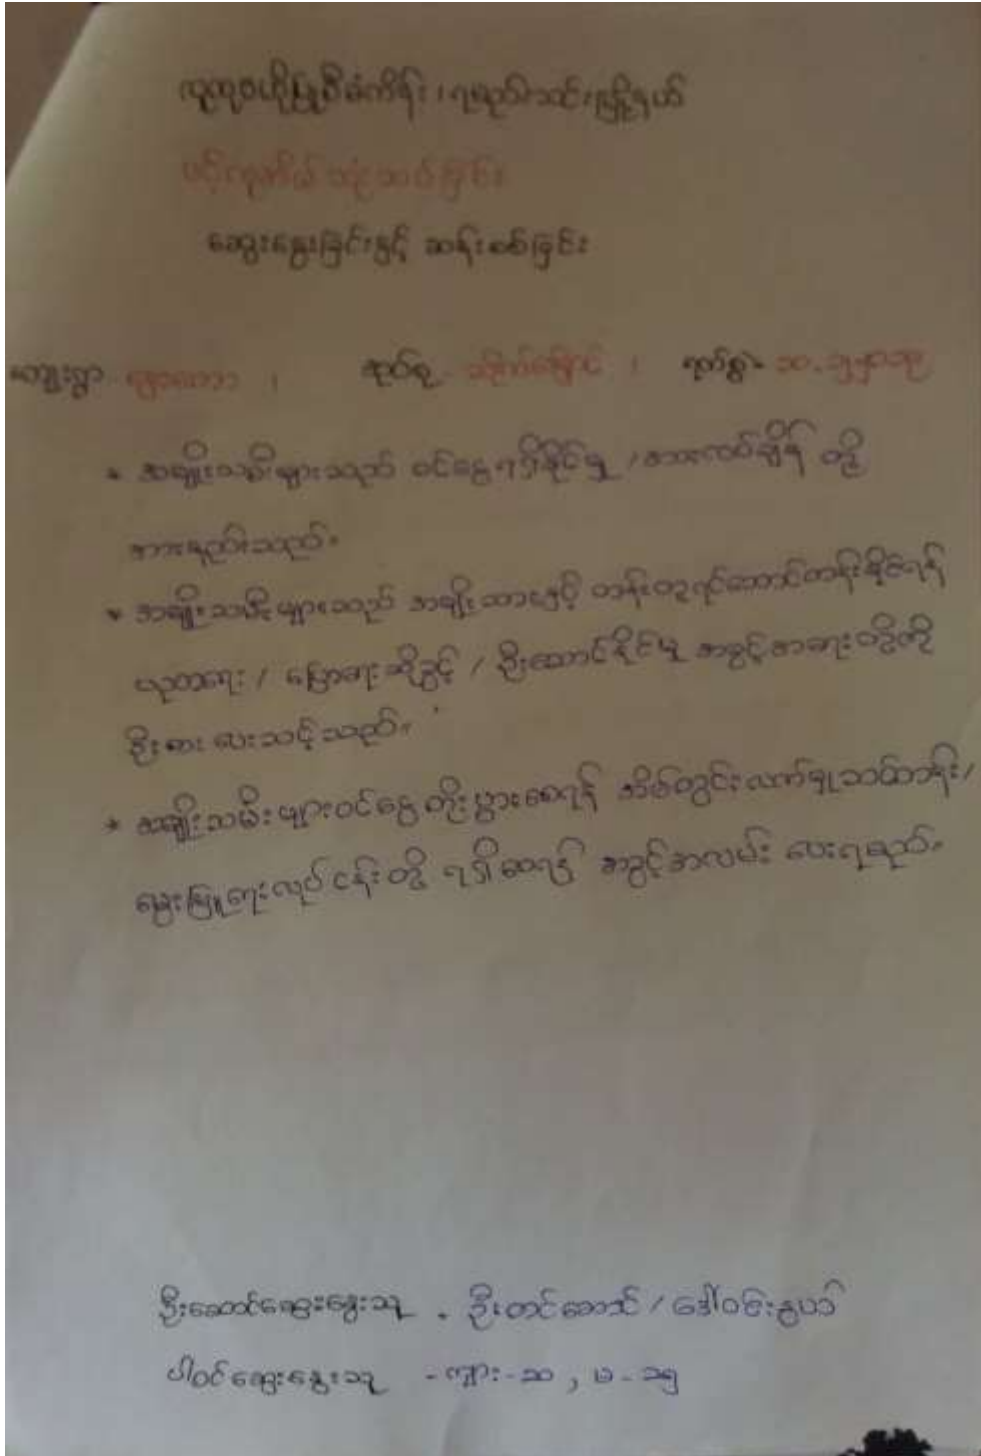 လူထုဗဟိုပြုစီမံကိန်း၊ ရမည်းသင်းမြို့နယ်
ဆွေးနွေးခြင်းနှင့် ဆန်းစစ်ခြင်း
ကျေးရွာ ၊ အုပ်စု - ၊ ရက်စွဲ -
* အမျိုးသမီးများသည် ဝင်ငွေရရှိနိုင်မှု / အားလပ်ချိန် တို့
အားနည်းသည်။
* အမျိုးသမီးများသည် အမျိုးသားနှင့် တန်းတူရင်ဘောင်တန်းနိုင်ရန်
ပညာရေး / ပြောရေးဆိုခွင့် / ဦးဆောင်နိုင်မှု အခွင့်အရေးတို့ကို
ဦးစားပေးသင့်သည်။
* အမျိုးသမီးများဝင်ငွေတိုးပွားစေရန် အိမ်တွင်းလက်မှုသင်တန်း /
မွေးမြူရေးလုပ်ငန်းတို့ ရရှိစေရန် အခွင့်အလမ်း ပေးရမည်။
ဦးဆောင်ဆွေးနွေးသူ - ဦးတင်အောင် / ဒေါ်ဝင်းနွယ်
ပါဝင်ဆွေးနွေးသူ - ကျား - ၁၀ , မ - ၁၅